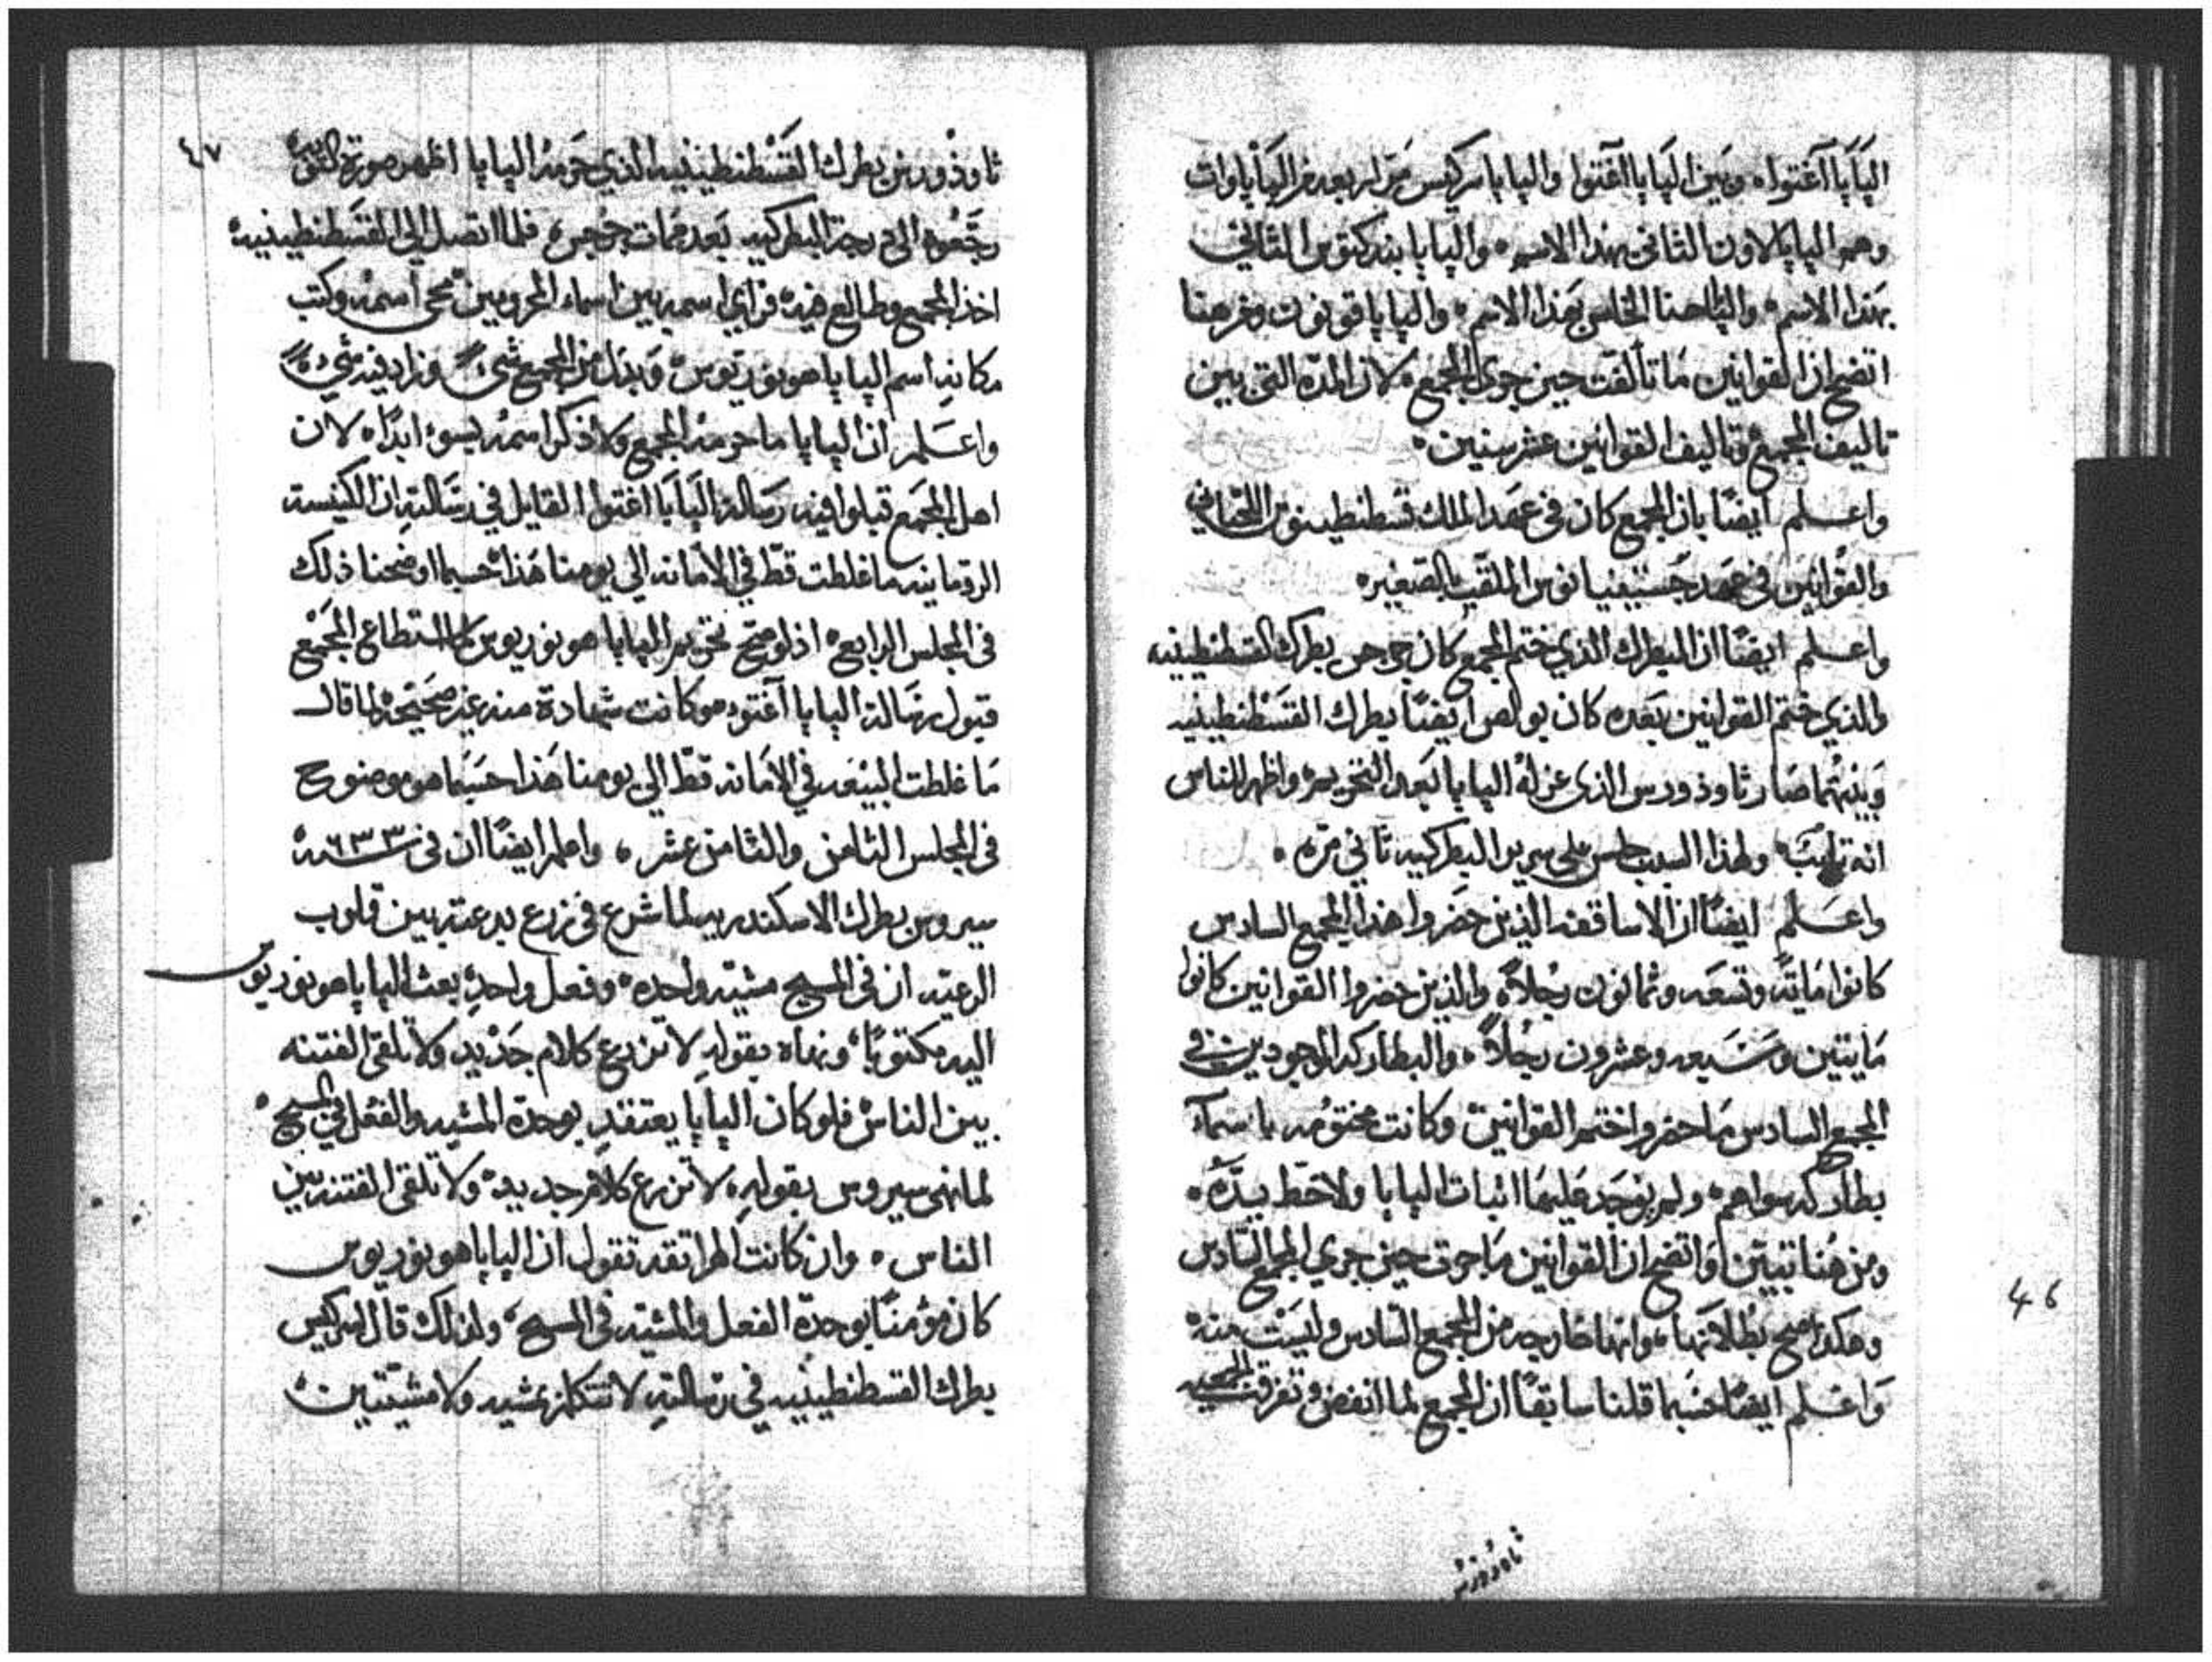 البَابَا آغتوا، وبَين البَابا آغتوا والبابا سركيس مَرّ اربعه من البَابَاوات
وهم البابا لاون الثاني بهذا الاسم، والبابا بندكتوس الثاني
بهَذا الاسم، والبابا حنا الخامس بهَذا الاسم، والبابا قونون ومن هنا
اتضح ان القوانين مَا تألّفت حين جرى المجمع، لان المدّه التي بين
تاليف المجمع وتاليف القوانين عشر سنين،
واعلم ايضًا بان المجمع كان في عهَد الملك قسطنطينوس اللحياني
والقوانين في عهد جستينيانوس الملقب بالصغير،
واعلم ايضًا ان البطرك الذي ختم المجمع كان جرجس بطرك القسطنطينيه
والذي ختم القوانين بَعده كان بولص ايضًا بطرك القسَطنطينيه
وَبينهما صَار ثاوذورس الذي عزلهُ البابا بَعد التحريم، واظهر للناس
انه تايب، ولهذا السبب جلس على سرير البطركيه ثاني مرّه،
واعَلم ايضًا ان الاساقفه الذين حضَروا هذا المجمع السادس
كانوا مَايَة وتسعَه وثمانون رجُلاً، والذين حضروا القوانين كانوا
مَايتين وسَبعه وعشرون رجُلاً، والبطاركه الموجودين في
المجمع السادس مَا حضروا ختم القوانين وكانت مختومه باسمآء
بطاركه سواهم، ولم يوجَد عَليهَا اثبات البابا ولا خط يدّه،
ومن هُنا تبيّن وَاتضح ان القوانين مَا جرت حين جري المجمع السّادس
وهكذا صح بُطلانهَا، وانها خارجه من المجمع السّادس وليسَت منه
وَاعلم ايضًا حسَبما قلنا سابقًا ان المجمع لما انفض وتفرقت الجمعيه
ثاوذورس
46
٤٧
ثاوذورس بطرك القسَطنطينيه الذي حَرمهُ البابا اظهر صورة التوبه
رجّعوه الى درجة البطركيه بَعد ممات جرجس، فلما اتصل الي القسَطنطينيه
اخذ المجمع وطالع فيه، فراي اسمه بين اسماء المحرومين محى اسمهُ وكتب
مكانهِ اسم البابا هونوريوس، وَبدّل من المجمع شيءً وزاد فيه شيءً
واعَلم ان البابا ما حرمهُ المجمع ولا ذكر اسمهُ بسوءٍ ابدًا، لان
اهل المجمَع قبلوا فيه رسَالة البَابَا اغتوا القايل في رسَالتهِ ان الكنيسه
الرومانيه ما غلطت قطّ في الأمانه الي يومنا هَذا حسبما اوضحنا ذلك
في المجلس الرابع، اذ لو صحّ تحريم البابا هونوريوس لما استطاع المجمَع
قبول رسَالة البابا آغتوه وكانت شهادة منه غير صَحيحَه لما قال
مَا غلطت البيْعَه في الامَانه قطّ الي يومنا هَذا حسَبَما هو موضوح
في المجلس الثامن والثامن عشر، واعلم ايضًا ان في سنة ٦٣٣
سيروس بطرك الاسكندريه لما شرع في زرع بدعته بين قلوب
الرعيه ان في المسيح مشيّه واحده، وفعل واحدٍ بعث البابا هونوريوس
اليه مكتوبًا، ونهاه بقولهِ لا تزرع كلام جَديد ولا تلقى الفتنه
بين الناس، فلو كان البابا يعتقدِ بوحدة المشيه والفعل في المسيح،
لما نهى سيروس بقولهِ، لا تزرع كلامٍ جديد، ولا تلقى الفتنه بين
الناس، وان كانت الهراتقه تقول ان البابا هونوريوس
كان مؤمنًا بوحدة الفعل والمشيّه في المسيح، ولذلك قال لسركيس
بطرك القسطنطينيه في رسالتهِ لا تتكلم بمشيه ولا مشيّتين